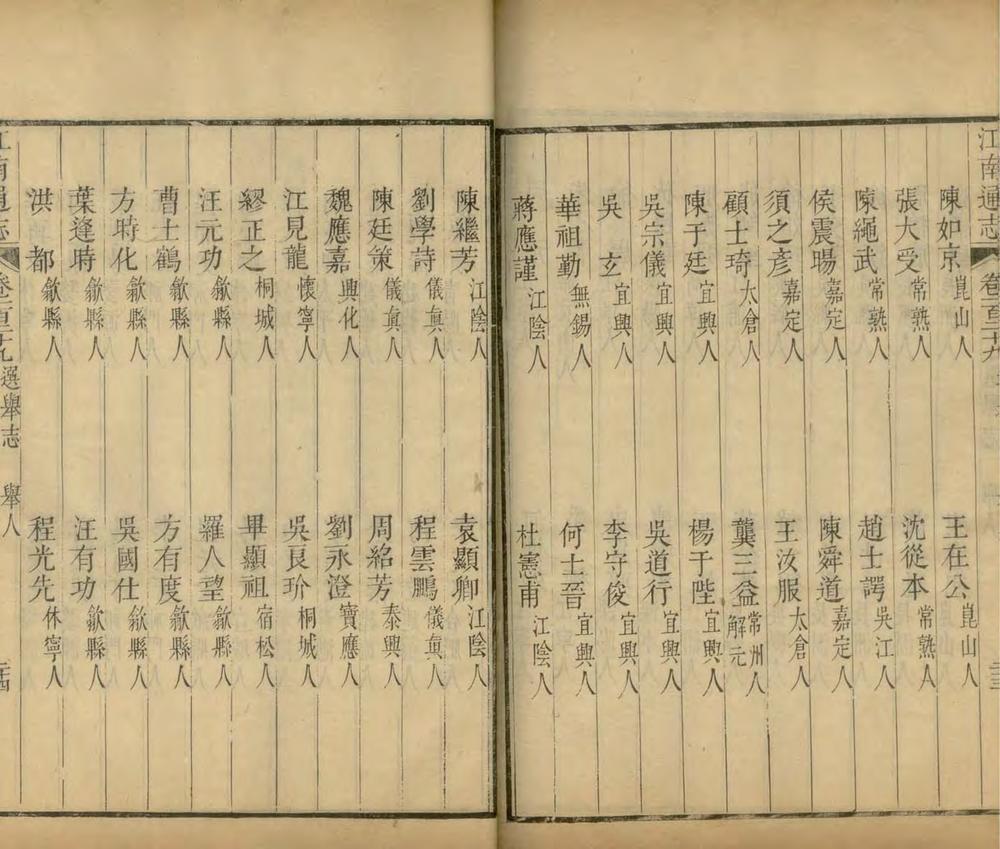 江南通志
卷一百二十九
陳如京 崑山人 王在公 崑山人
張大受 常熟人 沈從本 常熟人
陳繩武 常熟人 趙士諤 吳江人
侯震暘 嘉定人 陳舜道 嘉定人
須之彥 嘉定人 王汝服 太倉人
顧士琦 太倉人 龔三益 常州人解元
陳于廷 宜興人 楊于陛 宜興人
吳宗儀 宜興人 吳道行 宜興人
吳玄 宜興人 李守俊 宜興人
華祖勤 無錫人 何士晉 宜興人
蔣應謹 江陰人 杜憲甫 江陰人
陳繼芳 江陰人 袁顯卿 江陰人
劉學詩 儀眞人 程雲鵬 儀眞人
陳廷策 儀眞人 周紹芳 泰興人
魏應嘉 興化人 劉永澄 寶應人
江見龍 懷寧人 吳良玠 桐城人
繆正之 桐城人 畢顯祖 宿松人
汪元功 歙縣人 羅人望 歙縣人
曹士鶴 歙縣人 方有度 歙縣人
方時化 歙縣人 吳國仕 歙縣人
葉逢時 歙縣人 汪有功 歙縣人
洪都 歙縣人 程光先 休寧人
江南通志 卷一百二十九 選舉志 舉人